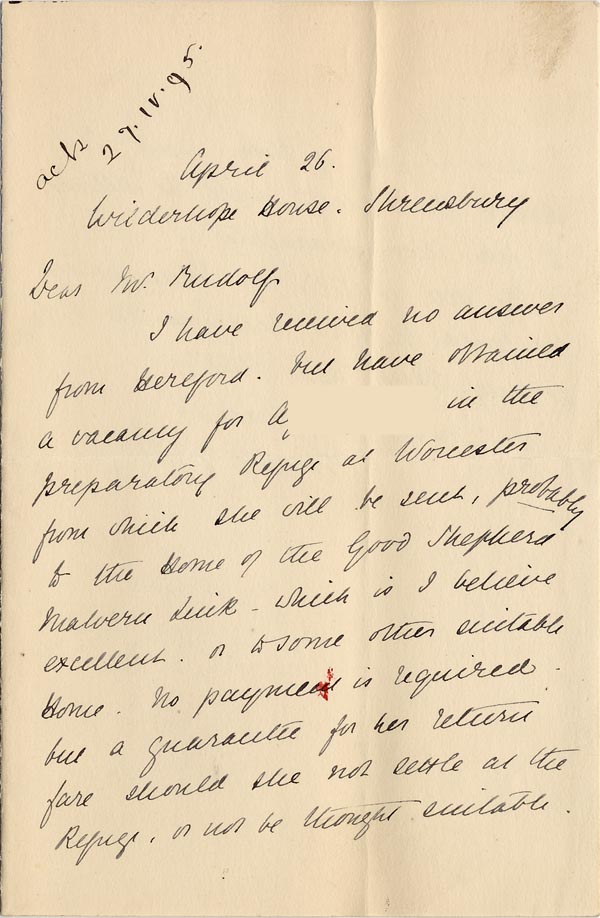 ack
27.IV.95.
April 26.
Wilderhope House. Shrewsbury
Dear Mr. Rudolf
I have received no answer
from Hereford. but have obtained
a vacancy for A in the
preparatory Refuge at Worcester
from which she will be sent, probably
to the Home of the Good Shepherd
Malvern Link - which is I believe
excellent. or to some other suitable
Home. No payment is required.
but a guarantee for her return
fare should she not settle at the
Refuge, or not be thought suitable.